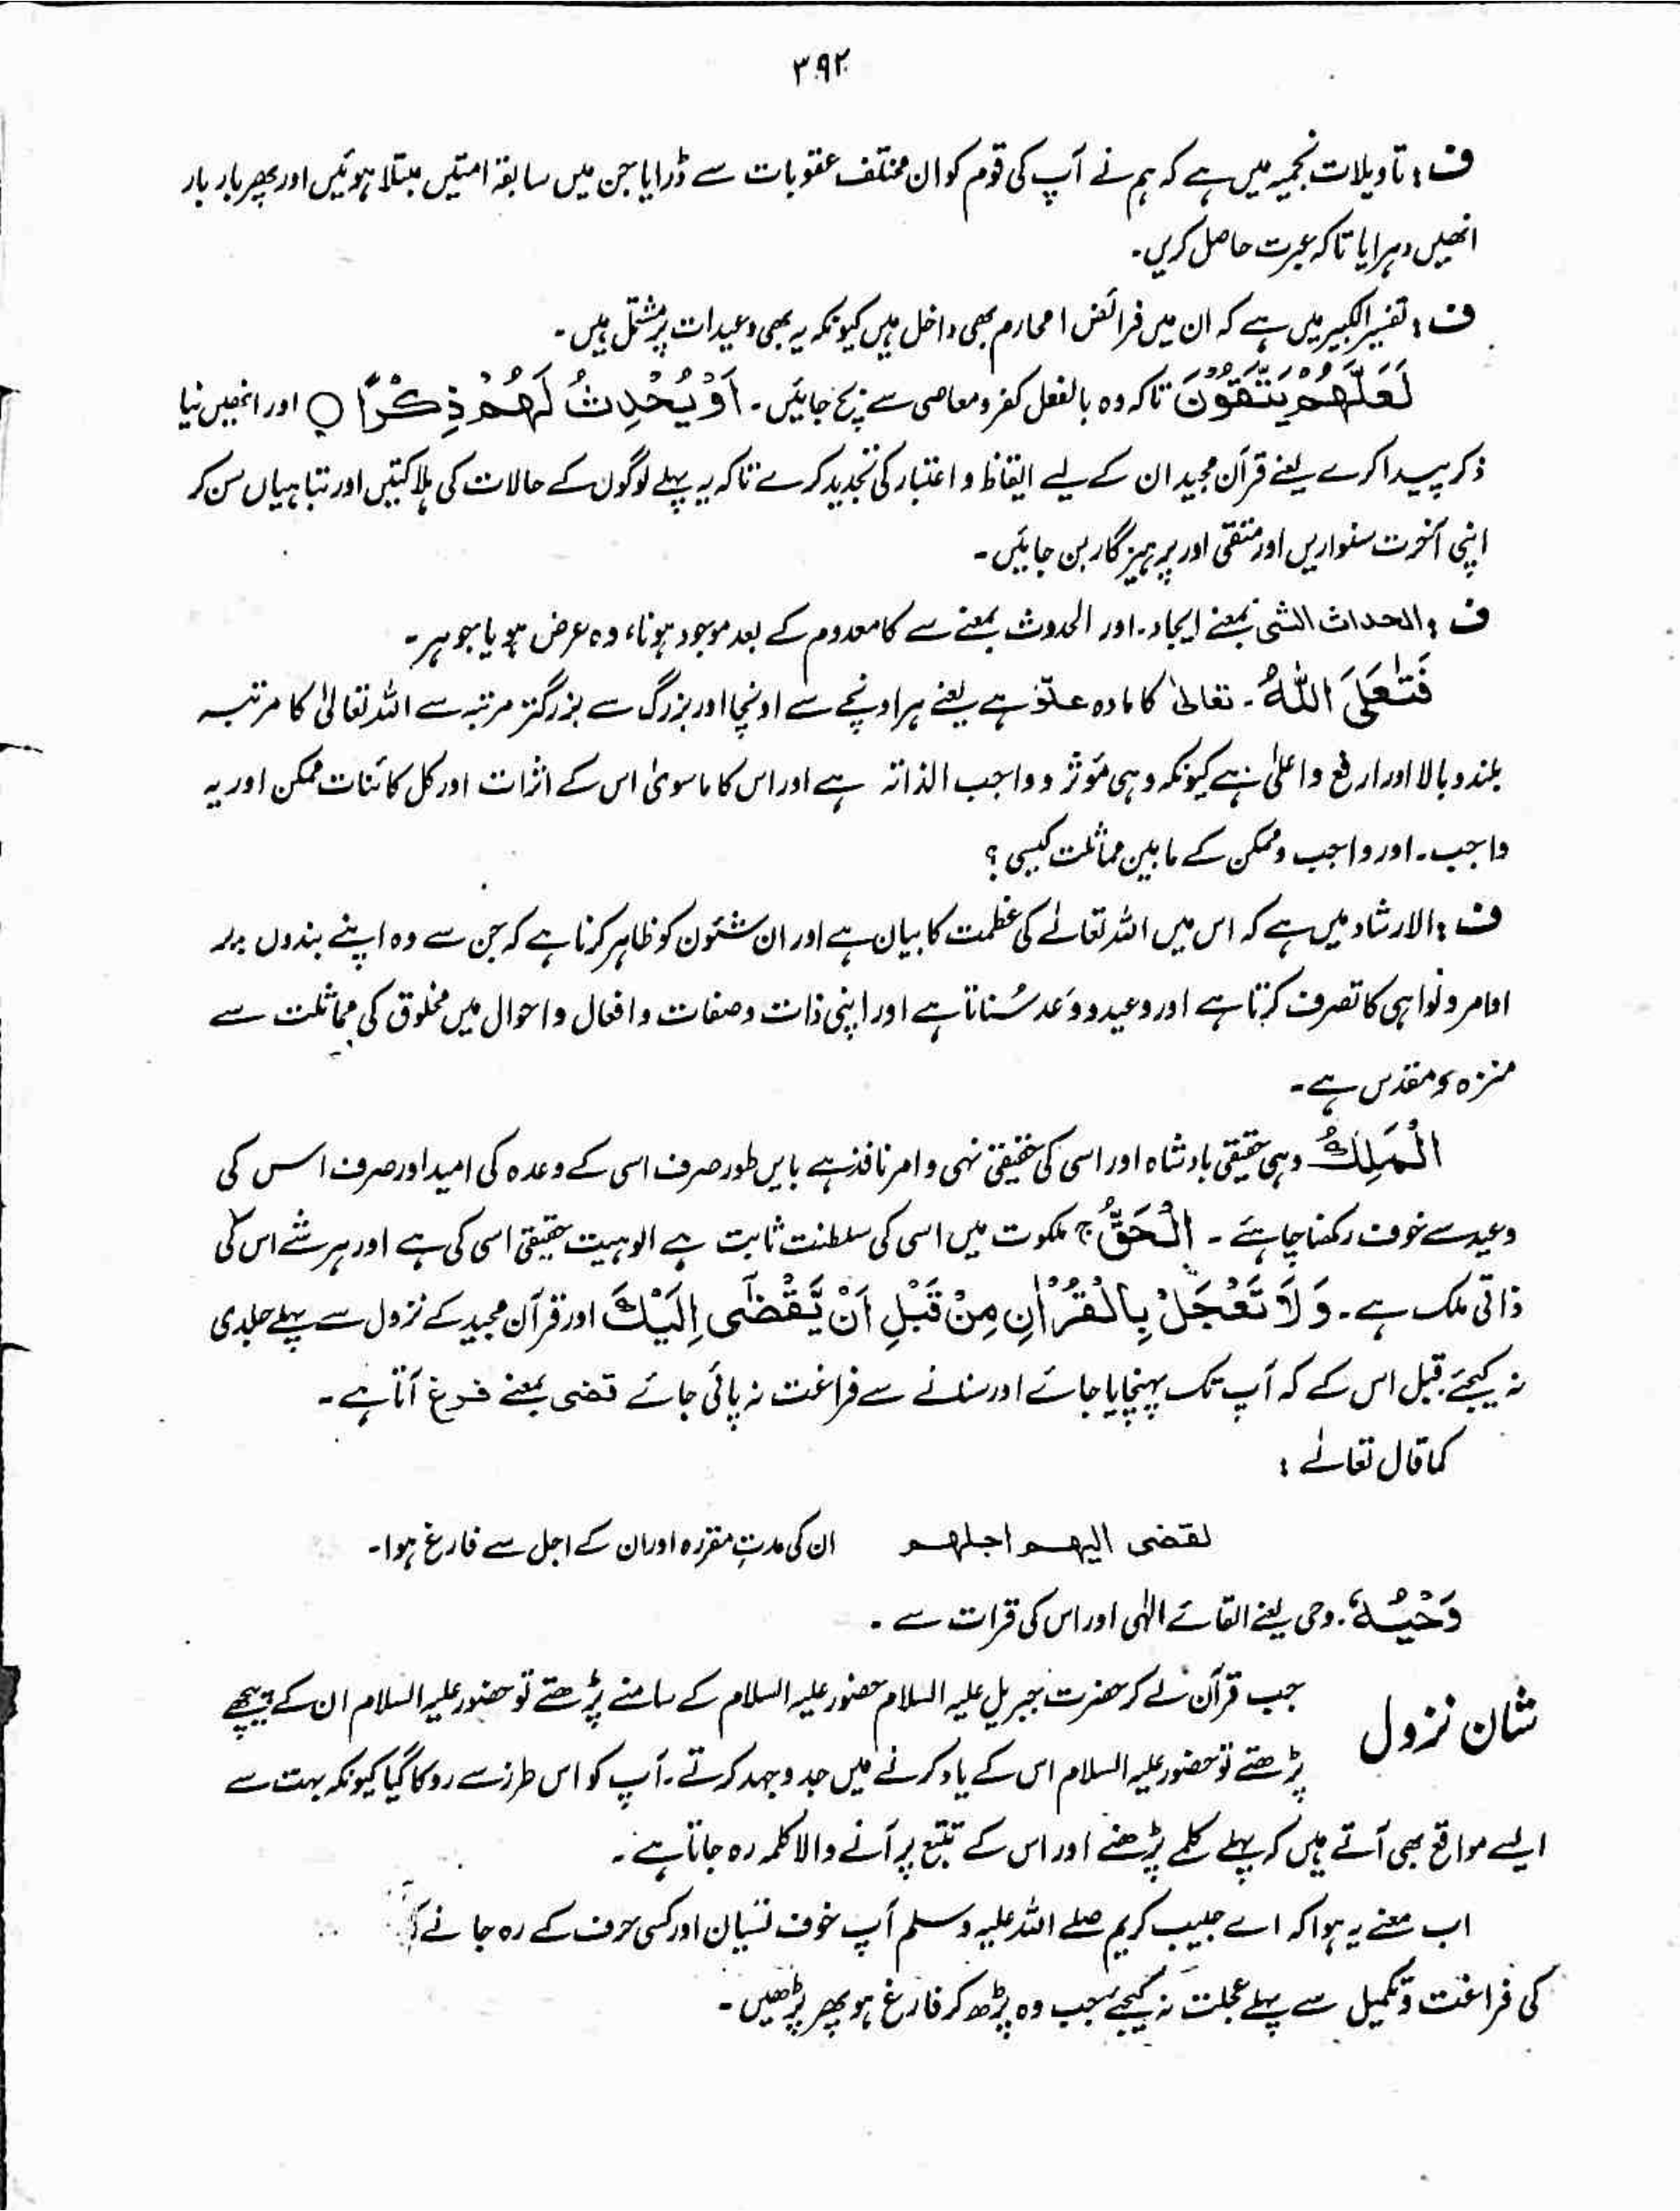 ۳۹۲
ف : تاویلات نجمیہ میں ہے کہ ہم نے آپ کی قوم کو ان مختلف عقوبات سے ڈرایا جن میں سابقہ امتیں مبتلا ہوئیں اور پھر بار بار
انھیں دہرایا تاکہ عبرت حاصل کریں۔
ف : تفسیر الکبیر میں ہے کہ ان میں فرائض ا محارم بھی داخل ہیں کیونکہ یہ بھی وعیدات پر مشتمل ہیں۔
لَعَلَّهُمْ يَتَّقُوْنَ تاکہ وہ بالفعل کفر و معاصی سے بچ جائیں۔ اَوْ يُحْدِثُ لَهُمْ ذِكْرًا ○ اور انھیں نیا
ذکر پیدا کرے یعنے قرآن مجید ان کے لیے ایقاظ و اعتبار کی تجدید کرے تاکہ یہ پہلے لوگوں کے حالات کی ہلاکتیں اور تباہیاں سن کر
اپنی آخرت سنواریں اور متقی اور پرہیزگار بن جائیں۔
ف : الحداث الشی بمعنے ایجاد۔ اور الحدوث بمعنے سے کا معدوم کے بعد موجود ہونا، وہ عرض ہو یا جوہر۔
فَتَعٰلَى اللّٰهُ۔ تعالیٰ کا مادہ علوّ ہے یعنے ہر اونچے سے اونچا اور بزرگ سے بزرگتر مرتبہ سے اللہ تعالیٰ کا مرتبہ
بلند و بالا اور ارفع و اعلیٰ ہے کیونکہ وہی مؤثر و واجب الذاتہ ہے اور اس کا ماسویٰ اس کے اثرات اور کل کائنات ممکن اور یہ
واجب۔ اور واجب و ممکن کے مابین مماثلت کیسی ؟
ف : الارشاد میں ہے کہ اس میں اللہ تعالےٰ کی عظمت کا بیان ہے اور ان شئون کو ظاہر کرنا ہے کہ جن سے وہ اپنے بندوں پر
اوامر و نواہی کا تصرف کرتا ہے اور وعید و وَعد سُناتا ہے اور اپنی ذات و صفات و افعال و احوال میں مخلوق کی مماثلت سے
منزہ و مقدس ہے۔
الْمَلِكُ وہی حقیقی بادشاہ اور اسی کی حقیقی نہی و امر نافذ ہے بایں طور صرف اسی کے وعدہ کی امید اور صرف اس کی
وعید سے خوف رکھنا چاہئے۔ الْحَقُّ ج ملکوت میں اسی کی سلطنت ثابت ہے الوہیت حقیقی اسی کی ہے اور ہر شے اس کی
ذاتی ملک ہے۔ وَلَا تَعْجَلْ بِالْقُرْاٰنِ مِنْ قَبْلِ اَنْ يُّقْضٰٓى اِلَيْكَ اور قرآن مجید کے نزول سے پہلے جلدی
نہ کیجئے قبل اس کے کہ آپ تک پہنچایا جائے اور سنانے سے فراغت نہ پائی جائے قضی بمعنے فرغ آتا ہے۔
کما قال تعالےٰ :
لقضی الیھم اجلھم ان کی مدتِ مقررہ اور ان کے اجل سے فارغ ہوا۔
وَحْيُهٗ۔ وحی یعنے القائے الٰہی اور اس کی قرات سے ۔
شان نزول جب قرآن لے کر حضرت جبریل علیہ السلام حضور علیہ السلام کے سامنے پڑھتے تو حضور علیہ السلام ان کے پیچھے
پڑھتے تو حضور علیہ السلام اس کے یاد کرنے میں جدوجہد کرتے۔ آپ کو اس طرز سے روکا گیا کیونکہ بہت سے
ایسے مواقع بھی آتے ہیں کہ پہلے کلمے پڑھنے اور اس کے تتبع پر آنے والا کلمہ رہ جاتا ہے۔
اب معنے یہ ہوا کہ اے حبیب کریم صلے اللہ علیہ وسلم آپ خوف نسیان اور کسی حرف کے رہ جانے
کی فراغت و تکمیل سے پہلے عجلت نہ کیجئے جب وہ پڑھ کر فارغ ہو پھر پڑھیں۔